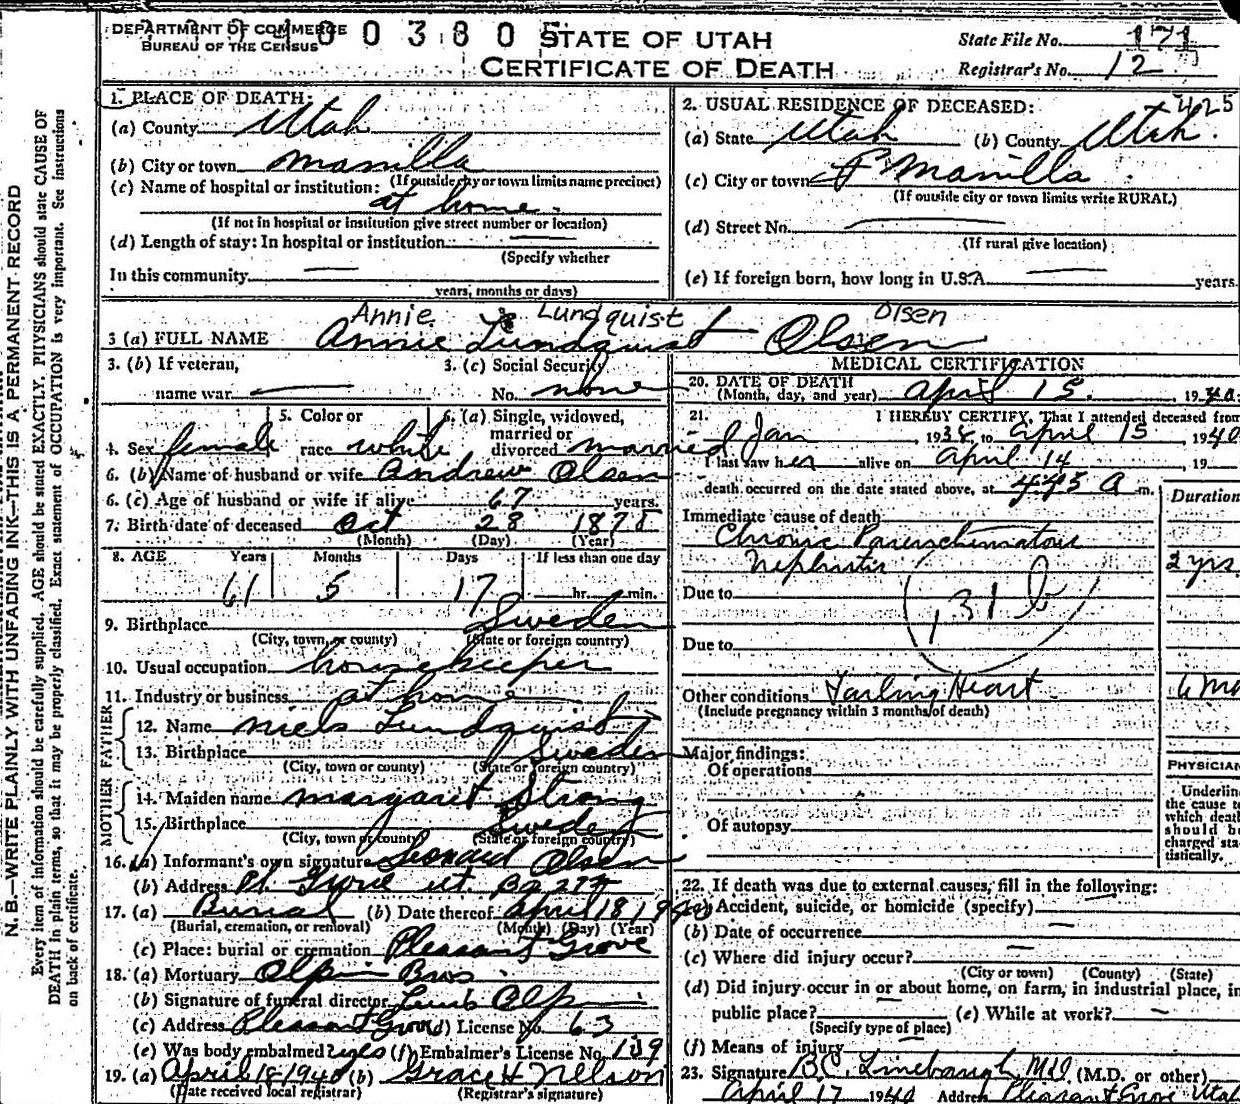 DEPARTMENT OF COMMERCE
BUREAU OF THE CENSUS
0 0 3 8 0
STATE OF UTAH
CERTIFICATE OF DEATH
State File No. 171
Registrar's No. 12
N. B.—WRITE PLAINLY WITH UNFADING INK—THIS IS A PERMANENT RECORD
Every item of information should be carefully supplied. AGE should be stated EXACTLY. PHYSICIANS should state CAUSE OF
DEATH in plain terms, so that it may be properly classified. Exact statement of OCCUPATION is very important. See instructions
on back of certificate.
1. PLACE OF DEATH:
(a) County Utah
(b) City or town Manilla
(If outside city or town limits name precinct)
(c) Name of hospital or institution:
at home
(If not in hospital or institution give street number or location)
(d) Length of stay: In hospital or institution —
(Specify whether
In this community —
years, months or days)
2. USUAL RESIDENCE OF DECEASED: 425
(a) State Utah (b) County Utah
(c) City or town Manilla
(If outside city or town limits write RURAL)
(d) Street No. —
(If rural give location)
(e) If foreign born, how long in U.S.A. — years.
Annie Lundquist Olsen
3 (a) FULL NAME Annie Lundquist Olsen
3. (b) If veteran,
name war —
3. (c) Social Security
No. none
4. Sex female
5. Color or
race white
6. (a) Single, widowed,
married or
divorced married
6. (b) Name of husband or wife Andrew Olsen
6. (c) Age of husband or wife if alive 67 years.
7. Birth date of deceased Oct 28 1878
(Month) (Day) (Year)
8. AGE Years Months Days If less than one day
61 5 17 hr. min.
9. Birthplace Sweden
(City, town, or county) (State or foreign country)
10. Usual occupation housekeeper
11. Industry or business at home
FATHER
12. Name Niels Lundquist
13. Birthplace Sweden
(City, town or county) (State or foreign country)
MOTHER
14. Maiden name Margaret Strong
15. Birthplace Sweden
(City, town or county) (State or foreign country)
16. (a) Informant's own signature Leonard Olsen
(b) Address Pl. Grove Ut.
17. (a) Burial (b) Date thereof April 18 1940
(Burial, cremation, or removal) (Month) (Day) (Year)
(c) Place: burial or cremation Pleasant Grove
18. (a) Mortuary Olpin Bros
(b) Signature of funeral director Olpin
(c) Address Pleasant Grove (d) License No. 63
(e) Was body embalmed? yes (f) Embalmer's License No. 109
19. (a) April 18 1940 (b) Grace H Nelson
(Date received local registrar) (Registrar's signature)
MEDICAL CERTIFICATION
20. DATE OF DEATH
(Month, day, and year) April 15. 1940.
21. I HEREBY CERTIFY, That I attended deceased from
Jan, 1938, to April 15, 1940
I last saw her alive on April 14, 19
death occurred on the date stated above, at 4:45 A m.
Duration
Immediate cause of death
Chronic Parenchematous
Nephritis
2 yrs.
Due to
131 b
Due to
Other conditions Failing Heart 6 mo
(Include pregnancy within 3 months of death)
Major findings:
Of operations
Of autopsy
PHYSICIAN
Underline
the cause to
which death
should be
charged sta-
tistically.
22. If death was due to external causes, fill in the following:
(a) Accident, suicide, or homicide (specify) —
(b) Date of occurrence —
(c) Where did injury occur? —
(City or town) (County) (State)
(d) Did injury occur in or about home, on farm, in industrial place, in
public place? — (e) While at work? —
(Specify type of place)
(f) Means of injury
23. Signature B.C. Linebaugh MD (M.D. or other)
April 17 1940 Address Pleasant Grove Utah